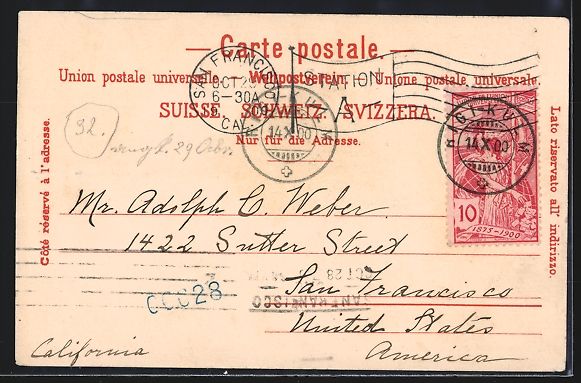 Carte postale.
Union postale universelle. — Weltpostverein. — Unione postale universale.
SUISSE. SCHWEIZ. SVIZZERA.
Nur für die Adresse.
Côté réservé à l'adresse.
Lato riservato all' indirizzo.
SAN FRANCISCO
OCT 28
6-30A
CAL.
STATION
A
14 X 00
RIGI-KULM
14 X 00
10
1875-1900
32.
29 Octbr.
Mr. Adolph C. Weber
1422 Sutter Street
San Francisco
United States
America
California
OCT 28
SAN FRANCISCO
28